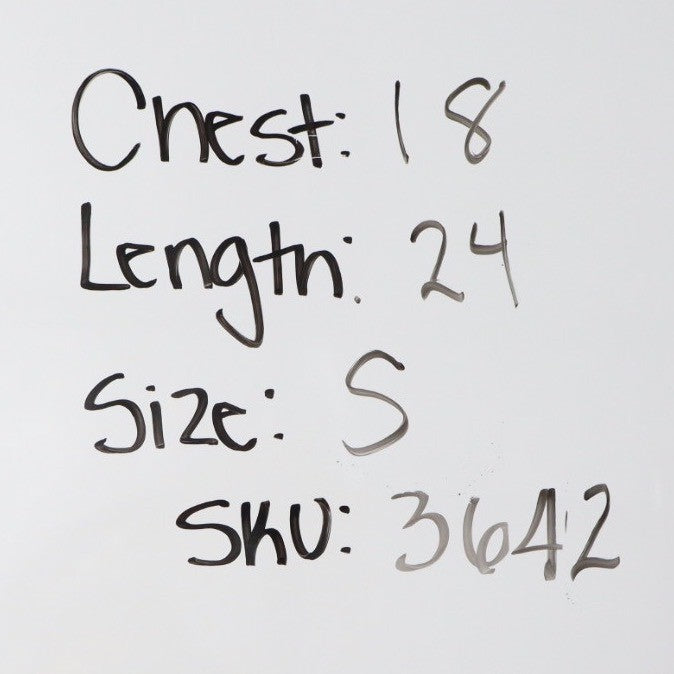 Chest: 18
Length: 24
Size: S
SKU: 3642